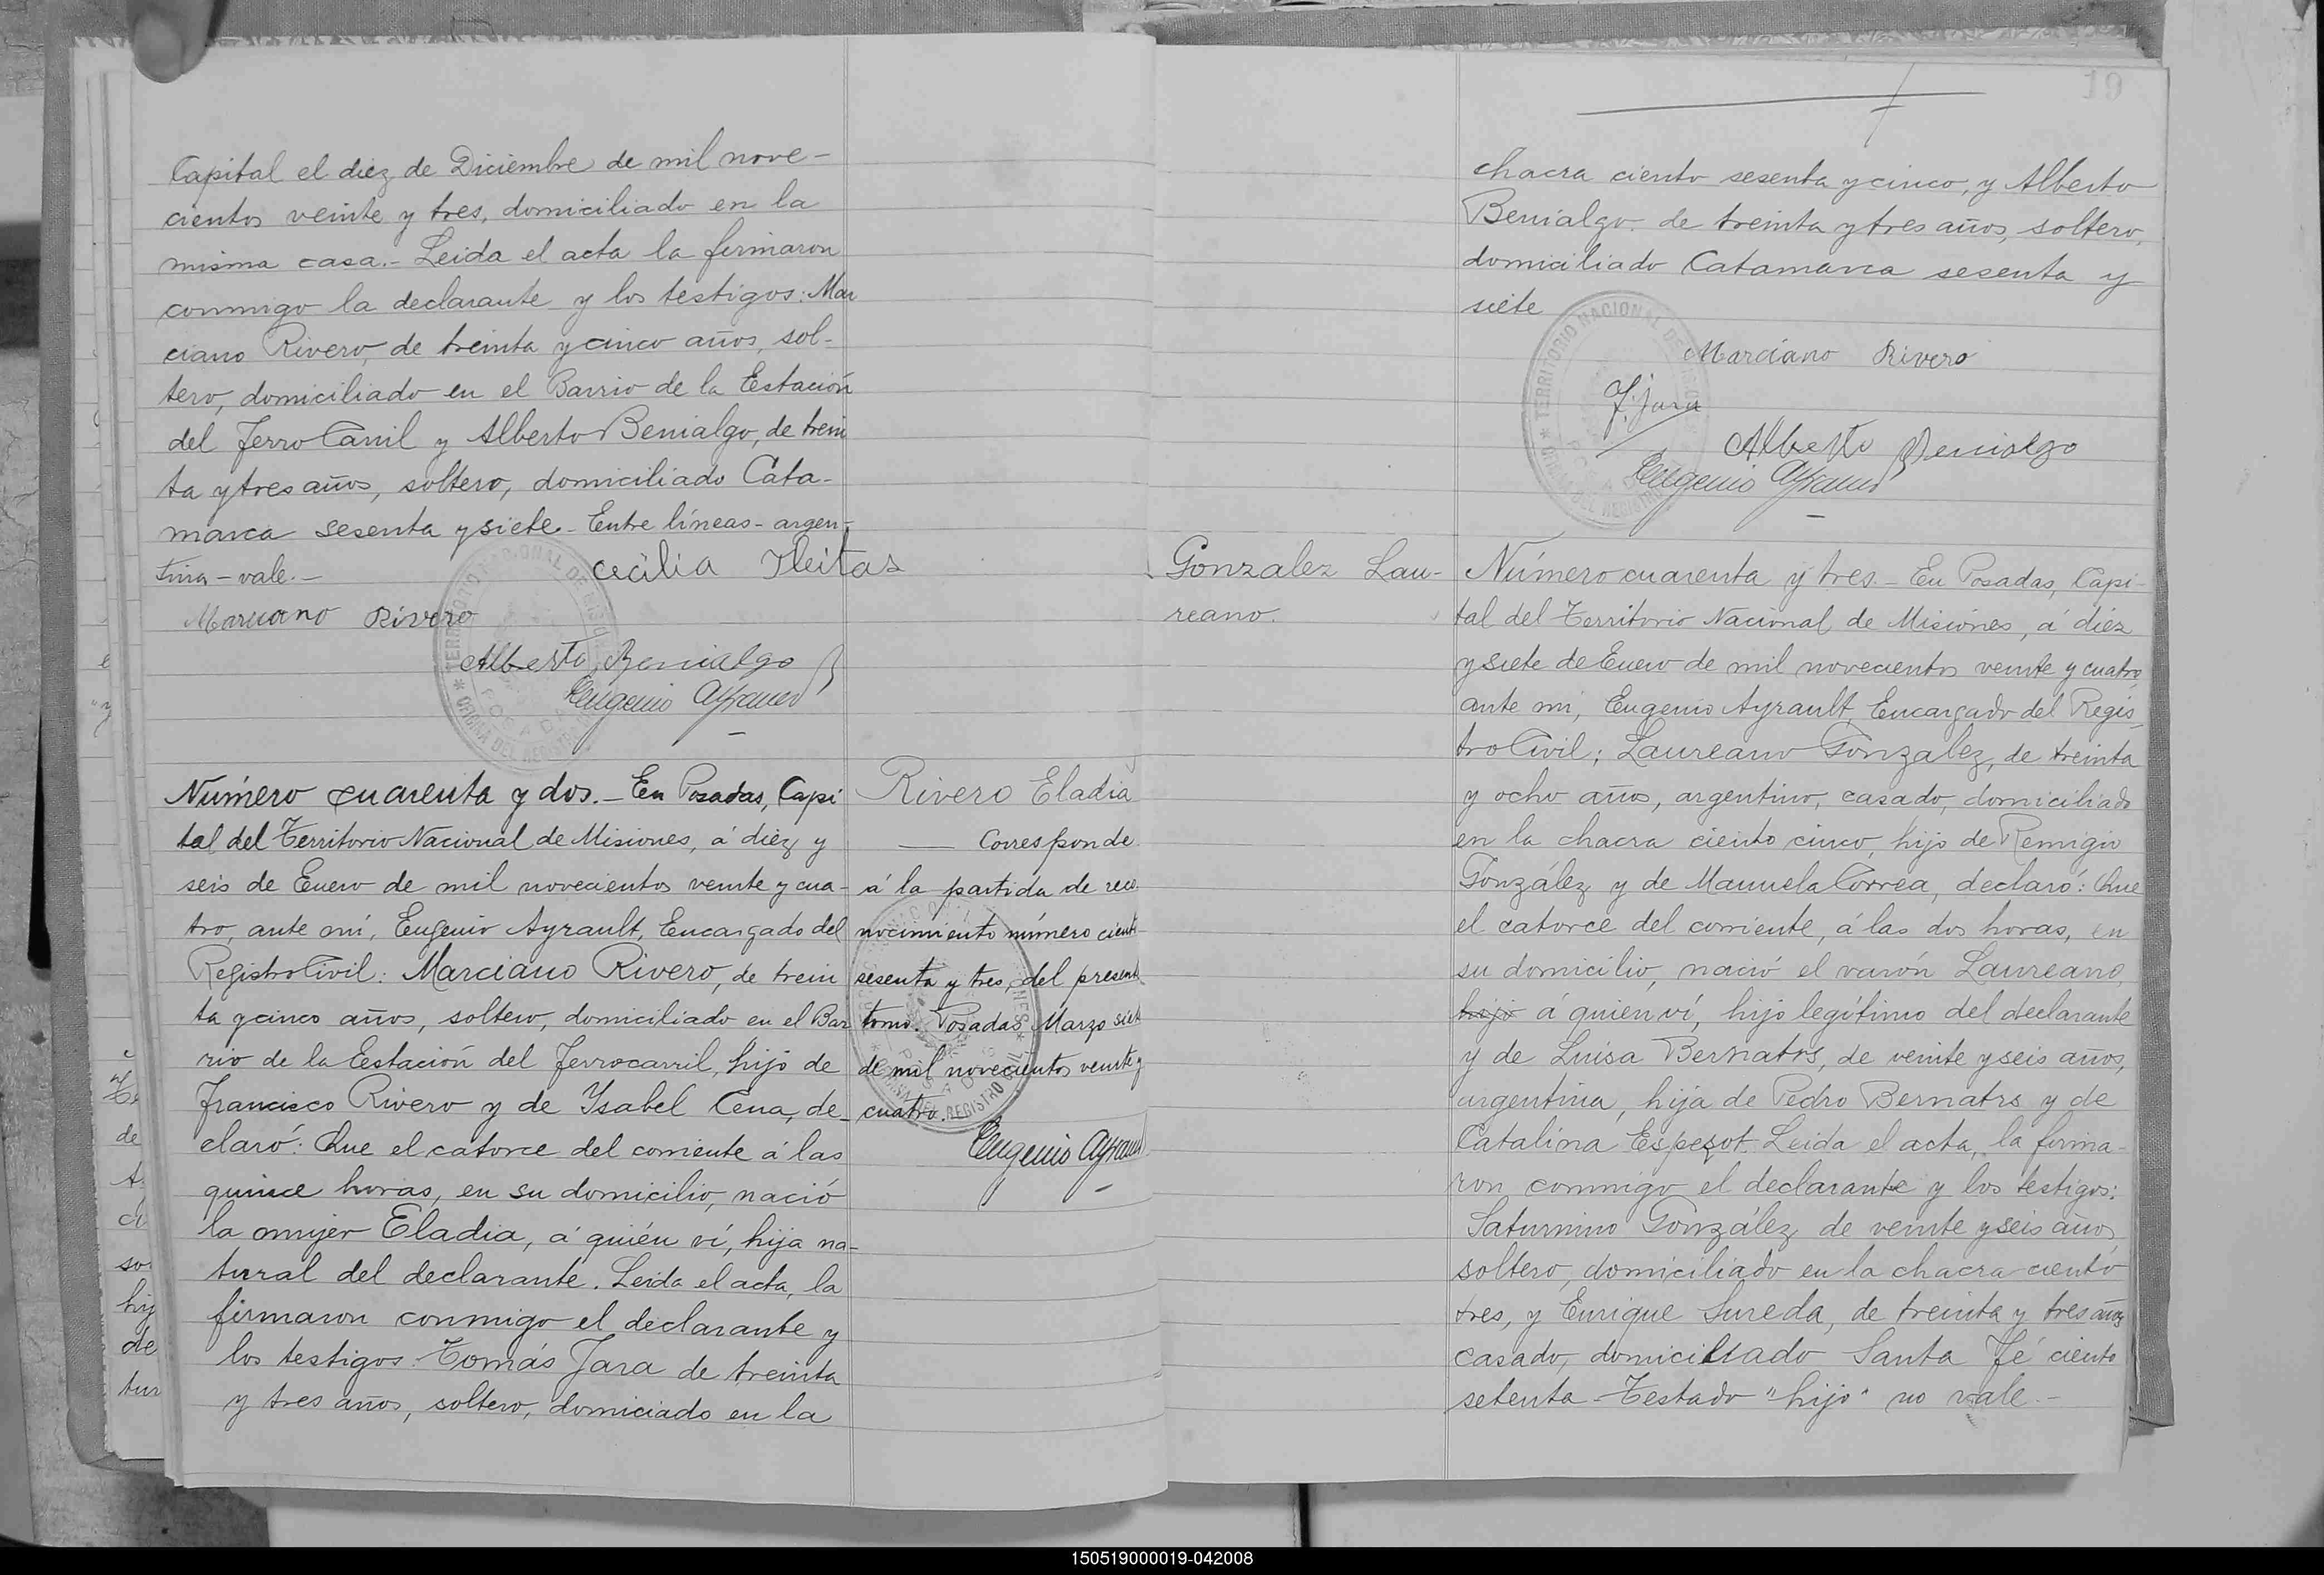 Capital el diez de Diciembre de mil nove-
cientos veinte y tres, domiciliado en la
misma casa.- Leida el acta la firmaron
conmigo la declarante y los testigos: Mar
ciano Rivero, de treinta y cinco años, sol-
tero, domiciliado en el Barrio de la Estación
del Ferro Carril y Alberto Benialgo, de trein
ta y tres años, soltero, domiciliado Cata-
marca sesenta y siete - Entre líneas - argen-
tina - vale.-
Cecilia Fleitas
Marciano Rivero
Alberto Benialgo
Eugenio Ayrault
Número cuarenta y dos.- En Posadas, Capi
tal del Territorio Nacional de Misiones, á diéz y
seis de Enero de mil novecientos veinte y cua-
tro, ante mí, Eugenio Ayrault, Encargado del
Registro Civil: Marciano Rivero, de trein
ta y cinco años, soltero, domiciliado en el Bar
rio de la Eestación del Ferrocarril, hijo de
Francisco Rivero y de Ysabel Cena, de-
claró: Que el catorce del corriente á las
quince horas, en su domicilio, nació
la mujer Eladia, á quién ví, hija na-
tural del declarante. Leida el acta, la
firmaron conmigo el declarante y
los testigos: Tomás Jara de treinta
y tres años, soltero, domiciado en la
Rivero Eladia
Corresponde
á la partida de reco
nocimiento número ciento
sesenta y tres, del presente
tomo. Posadas Marzo siete
de mil novecientos veinte y
cuatro.-
Eugenio Ayrault
19
chacra ciento sesenta y cinco, y Alberto
Benialgo de treinta y tres años, soltero,
domiciliado Catamarca sesenta y
siete
Marciano Rivero
T. Jara
Alberto Benialgo
Eugenio Ayrault
Gonzalez Lau-
reano.
Número cuarenta y tres.- En Posadas, Capi-
tal del Territorio Nacional de Misiones, á diéz
y siete de Enero de mil novecientos veinte y cuatro
ante mí, Eugenio Ayrault, Encargado del Regis
tro Civil; Laureano Gonzalez, de treinta
y ocho años, argentino, casado, domiciliado
en la chacra ciento cinco, hijo de Remigio
González y de Manuela Correa, declaró: Que
el catorce del corriente, á las dos horas, en
su domicilio, nació el varón Laureano,
hijo á quien ví, hijo legítimo del declarante
y de Luisa Bernatrs, de veinte y seis años,
argentina, hija de Pedro Bernatrs y de
Catalina Espezot. Leida el acta, la firma-
ron conmigo el declarante y los testigos:
Saturnino González de veinte y seis años,
soltero, domiciliado en la chacra ciento
tres, y Enrique Sureda, de treinta y tres años
casado, domiciliado Santa Fé ciento
setenta - Testado "hijo" no vale.-
150519000019-042008